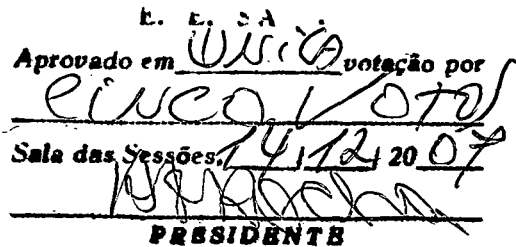 Aprovado em ÚNICA votação por
CINCO VOTOS
Sala das Sessões, 14, 12, 20 07
PRESIDENTE